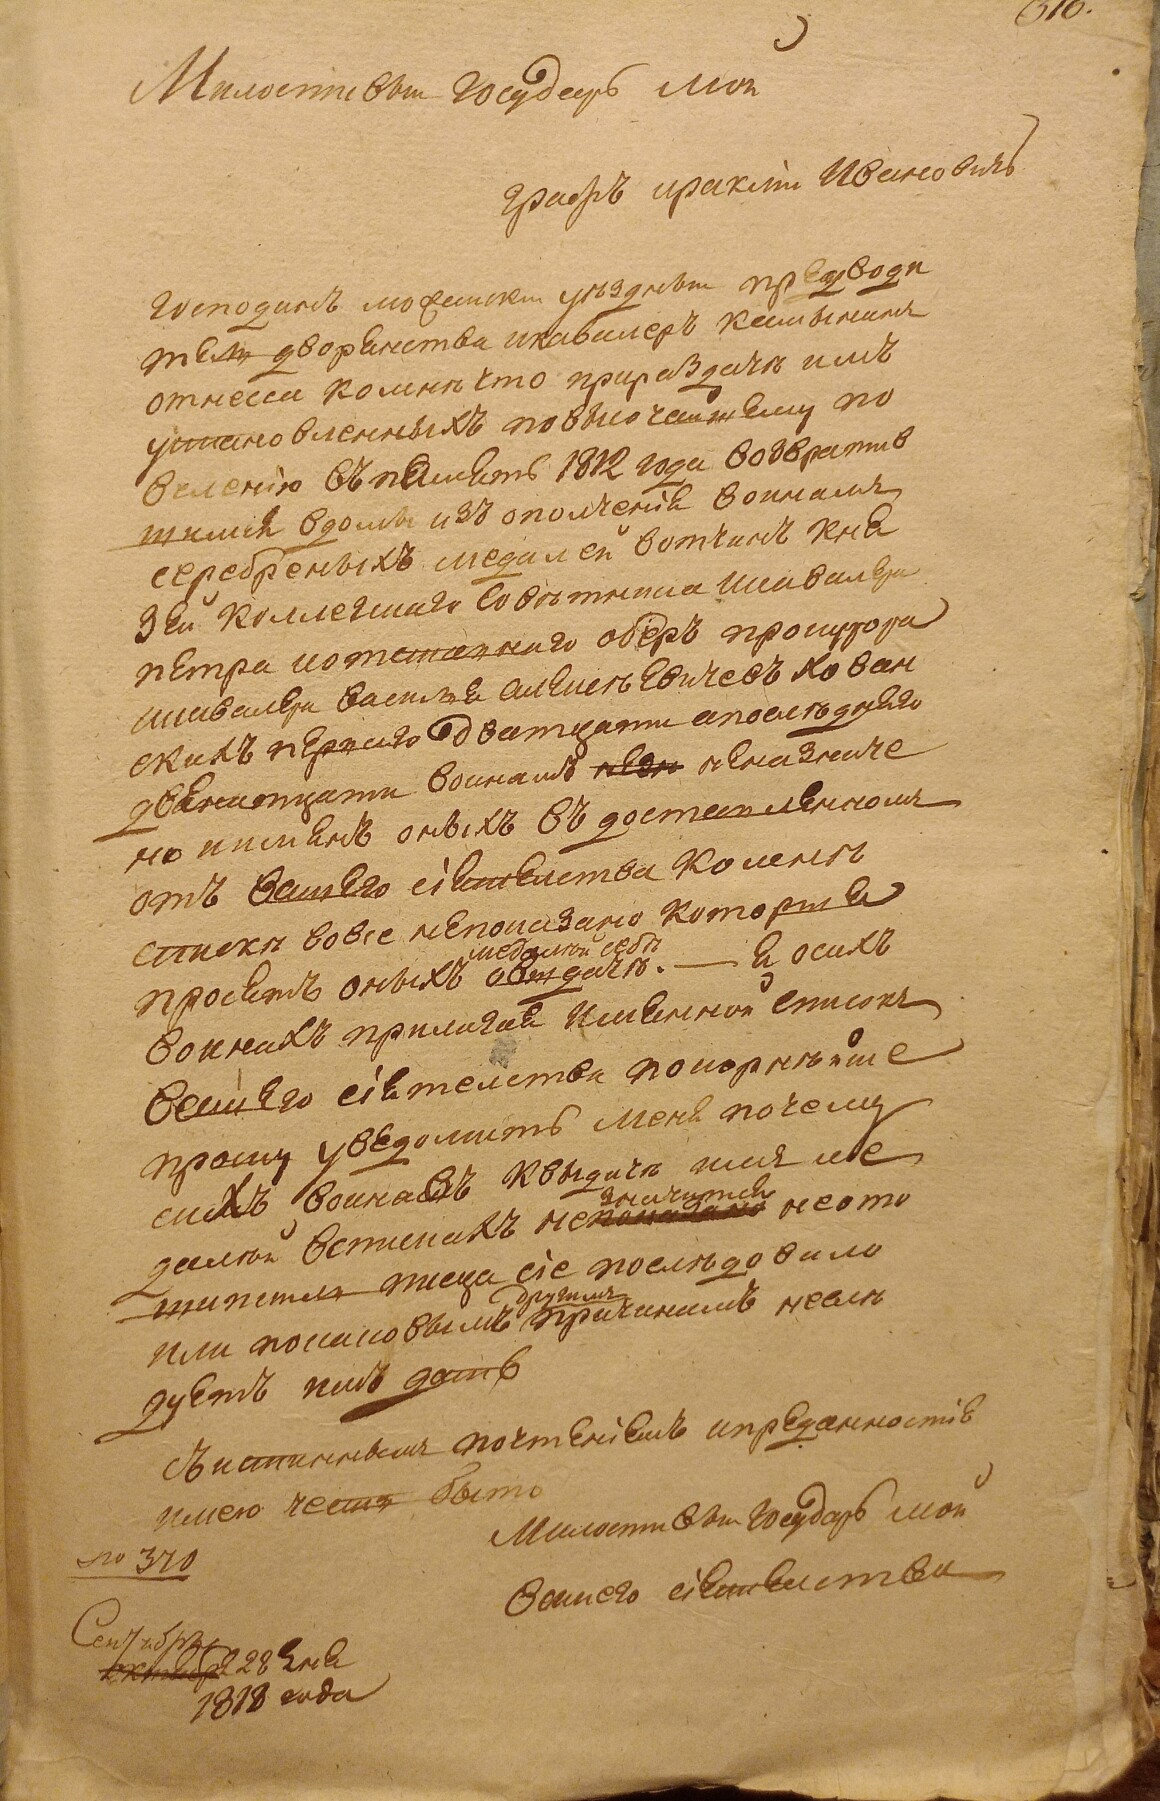 316.
Милостивый Государь мой
Графъ ираклiй Ивановичь
Господинъ можайски уѣздный предводи
тель дворянства икавалеръ
отнесся комнѣ что прираздачѣ имъ
установленныхъ повысочайшему по
велению въпамять 1812 года возврати
шимся вдомы изъ ополченiя воинамъ
серебреныхъ медалей вотчинъ кня
зей Коллежскаго советника икавалера
петра истатскаго оберъ прокурора
икавалера василья алексѣевичевъ хован
скихъ перваго дватцати апоследняго
двенатцати воинамъ неназначе
но иименъ оныхъ въ доставленномъ
отъ вашего сiятельства комнѣ
списке вовсе непоказано которыя
просятъ оныхъ медалей себѣ выдачи. — я осихъ
воинахъ прилагая имянной списокъ
вашего сiятельства покорнейше
прошу уведомить меня почему
сихъ воиновъ квыдачѣ имъ ме
далей вспискахъ незначится неото
шипкиль писца сiе последовало
или покаковымъ другимъ причинамъ несле
дуетъ имъ дать
съистиннымъ почтенiемъ ипреданностiю
имею честь быть
Милостивый Государь мой
вашего сiятельства
№ 370
Сентября
октября 28 дня
1818 года